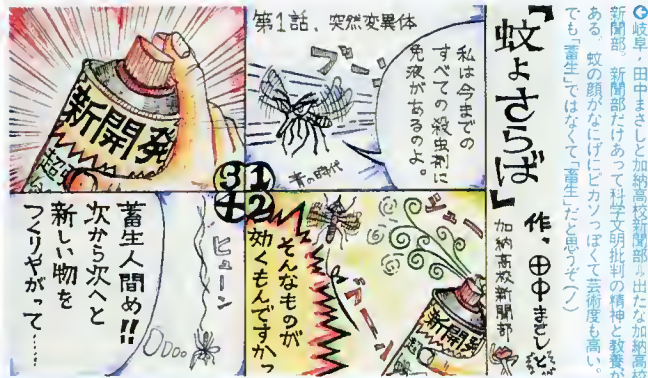 岐阜・田中まさしと加納高校新聞部=出たな加納高校
新聞部。新聞部だけあって科学文明批判の精神と教養が
ある。蚊の顔がなにげにピカソっぽくて芸術度も高い。
でも「蓄生」ではなくて「畜生」だと思うぞ(ノ)
「蚊よさらば」
作、田中まさしと
加納高校新聞部
第1話、突然変異体
私は今までの
すべての殺虫剤に
免液があるのよ。
ブーン
青の時代
1
2
3
4
シュー
ブーン
そんなものが
効くもんですかっ
新開発
新開発
超
ヒューン
蓄生人間め!!
次から次へと
新しい物を
つくりやがって……